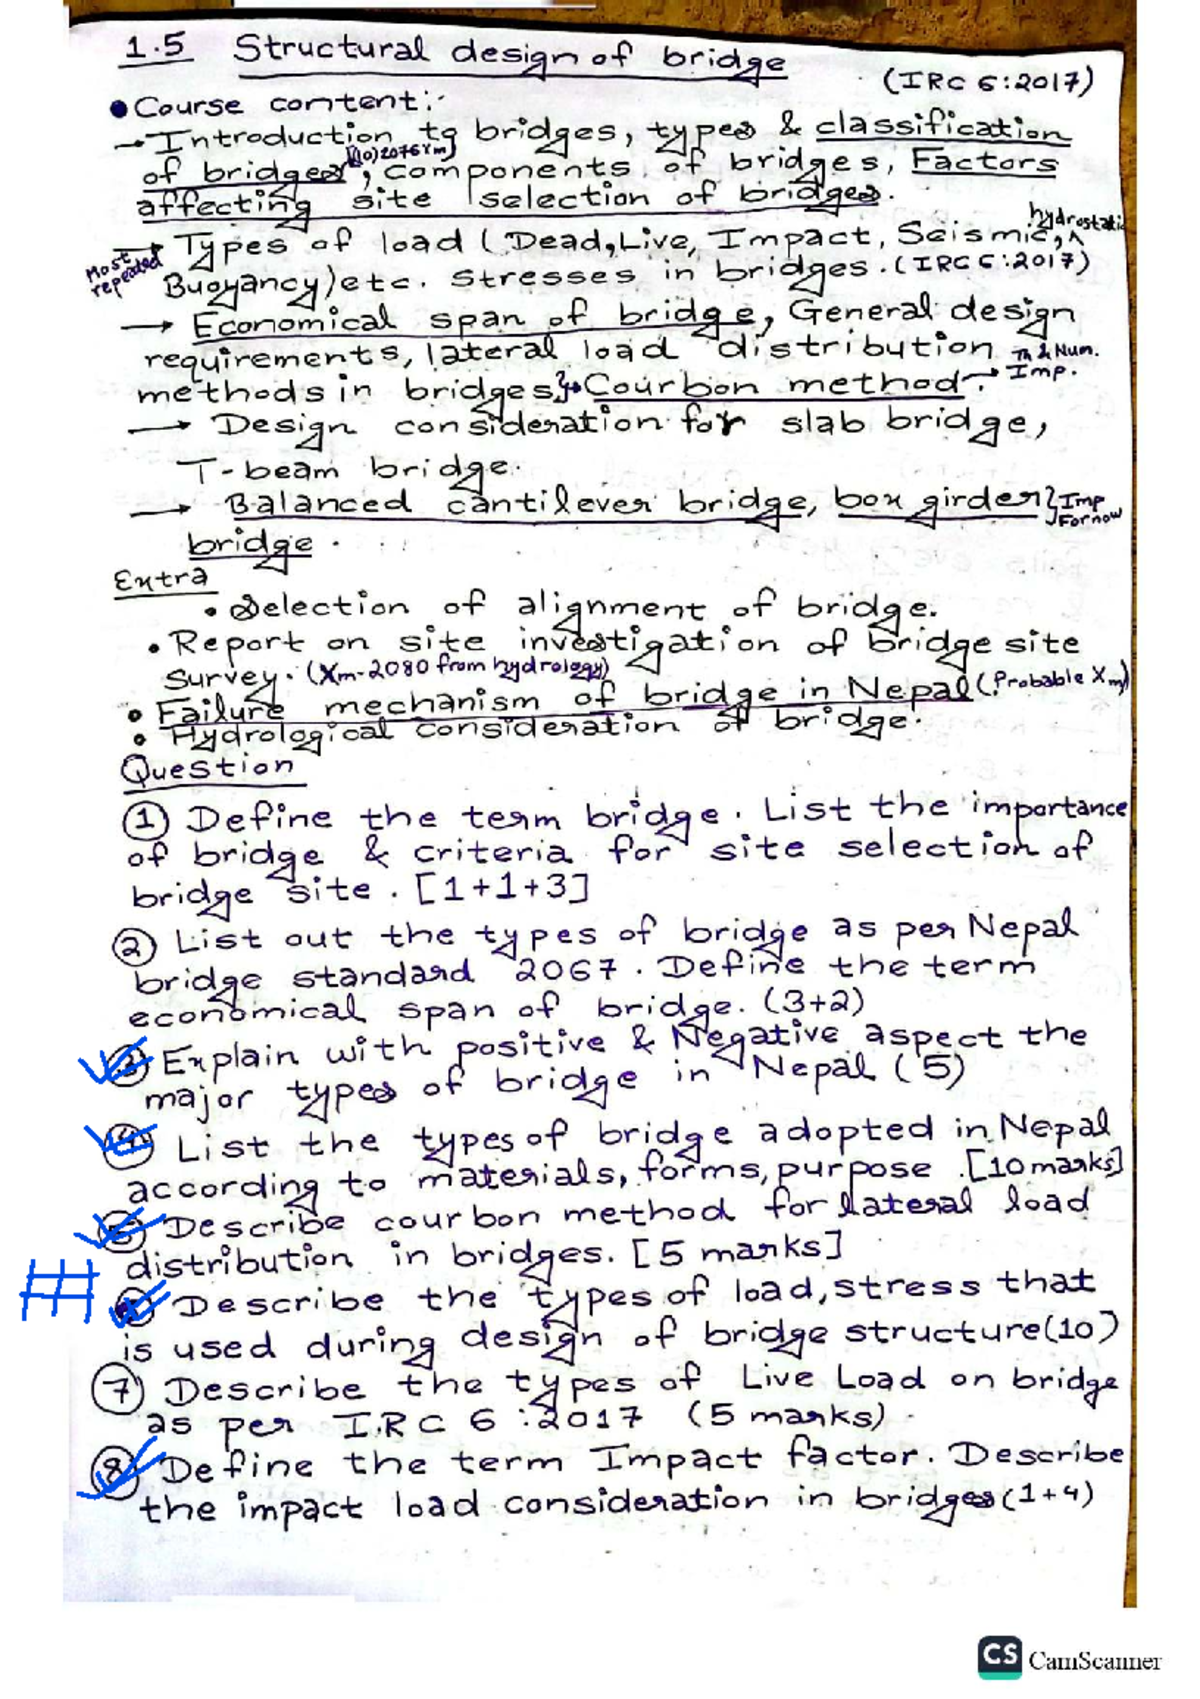 1.5 Structural design of bridge
(IRC 6:2017)
• Course content:-
→ Introduction to bridges, types & classification
[(10)2076 Xm]
of bridges, components of bridges, Factors
affecting site selection of bridges.
hydrostatic
Most repeated → Types of load (Dead, Live, Impact, Seismic, ^
Buoyancy) etc. Stresses in bridges. (IRC 6:2017)
→ Economical span of bridge, General design
requirements, lateral load distribution Th & Num.
methods in bridges}→ Courbon method → Imp.
→ Design consideration for slab bridge,
T-beam bridge.
→ Balanced cantilever bridge, box girder } Imp For now
bridge.
Extra
• Selection of alignment of bridge.
• Report on site investigation of bridge site
survey. (Xm-2080 from hydrology)
• Failure mechanism of bridge in Nepal (Probable Xm)
• Hydrological consideration of bridge.
Question
① Define the term bridge. List the importance
of bridge & criteria for site selection of
bridge site. [1+1+3]
② List out the types of bridge as per Nepal
bridge standard 2067. Define the term
economical span of bridge. (3+2)
③ Explain with positive & Negative aspect the
major types of bridge in Nepal (5)
④ List the types of bridge adopted in Nepal
according to materials, forms, purpose. [10 marks]
⑤ Describe courbon method for lateral load
distribution in bridges. [5 marks]
Describe the types of load, stress that
is used during design of bridge structure (10)
⑦ Describe the types of Live Load on bridge
as per I.R.C 6:2017 (5 marks)
⑧ Define the term Impact factor. Describe
the impact load consideration in bridges (1+4)
CS CamScanner